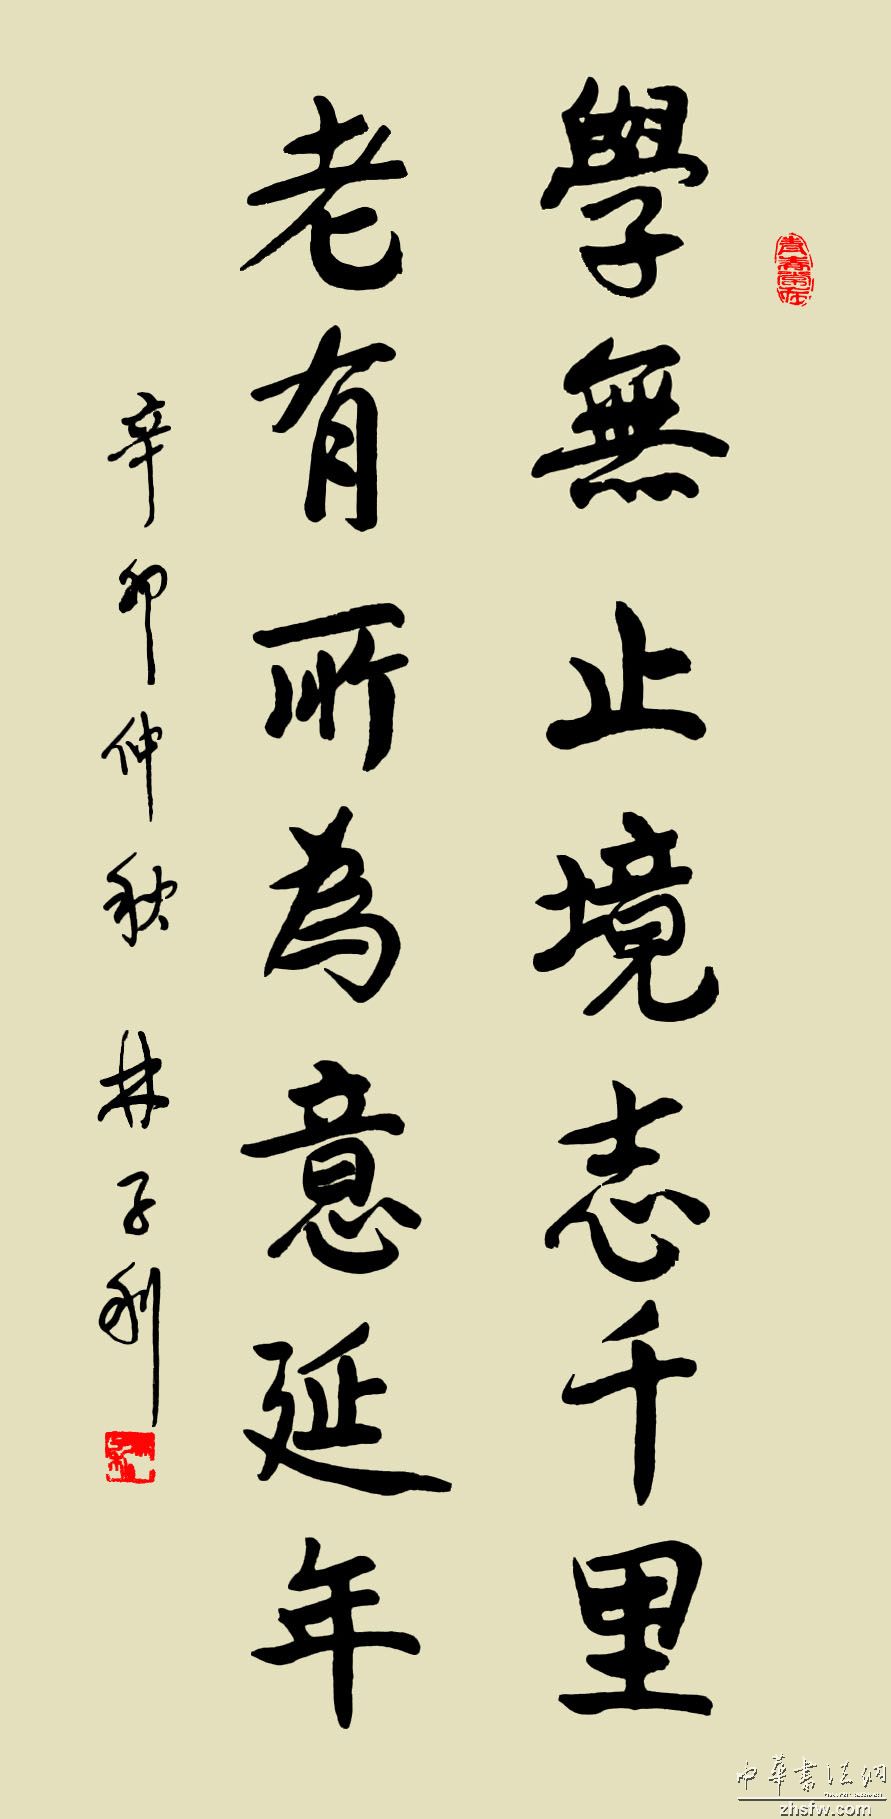 學無止境志千里
老有所為意延年
辛卯仲秋 林子利
中華書法網
zhsfw.com